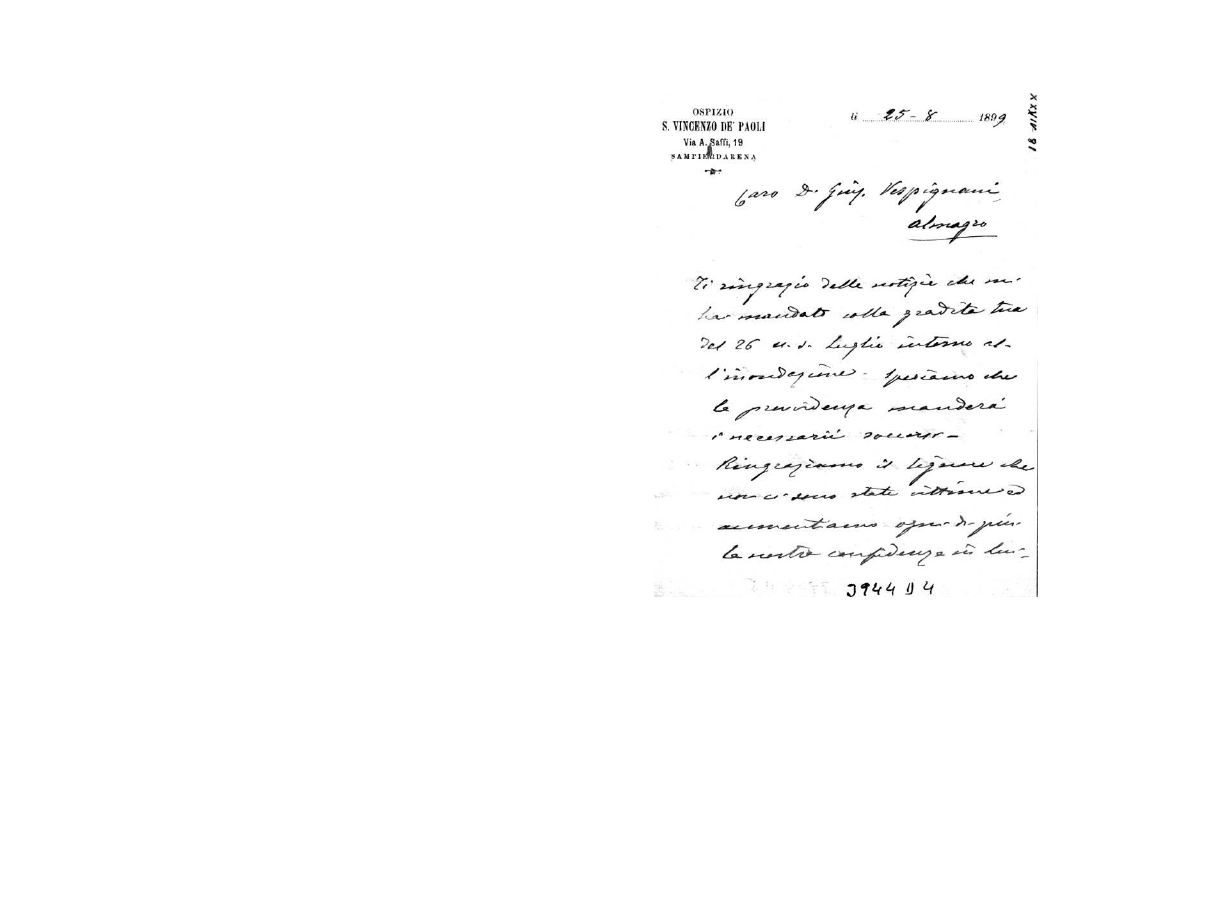 OSPIZIO
S. VINCENZO DE' PAOLI
Via A. Saffi, 19
SAMPIERDARENA
li 25-8 1899
Caro D. Giuş. Vespignani,
Almagro
Ti ringrazio delle notizie che mi
hai mandato colla gradita tua
del 26 u. s. Luglio intorno al-
l'inondazione. Speriamo che
la provvidenza manderà
i necessarii soccorsi -
Ringraziamo il Signore che
non ci sono state vittime ed
aumentiamo ogni dì più
la nostra confidenza in Lui -
3944 D 4